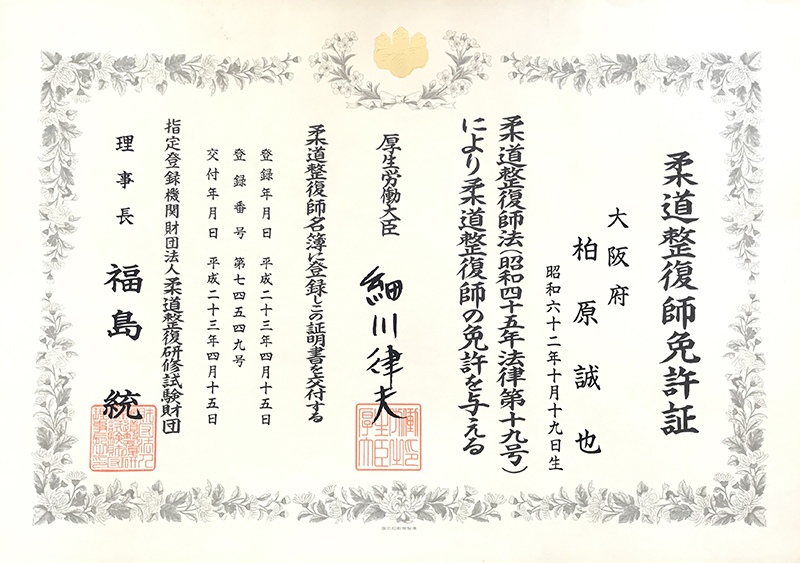 柔道整復師免許証
大阪府
柏原誠也
昭和六十二年十月十九日生
柔道整復師法(昭和四十五年法律第十九号)
により柔道整復師の免許を与える
厚生労働大臣
細川律夫
柔道整復師名簿に登録しこの証明書を交付する
登録年月日 平成二十三年四月十五日
登録番号 第七四五四九号
交付年月日 平成二十三年四月十五日
指定登録機関財団法人柔道整復研修試験財団
理事長 福島統